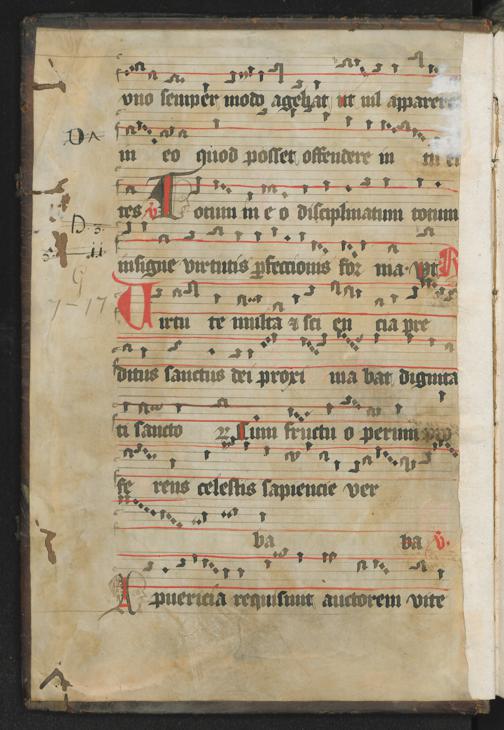 vno semper modo agebat ut nil apparere
in eo quod posset offendere in
D A
tes v Totum in e o disciplinatum totum
D. 3.
insigne virtutis pfectionis for ma vt R
G
7-17
Uirtu te multa et sci en cia pre
ditus sanctus dei proxi ma bat dignita
ti sancto Cum fructu o perum
fe rens celestis sapiencie ver
ba ba v.
A puericia requisiuit auctorem vite